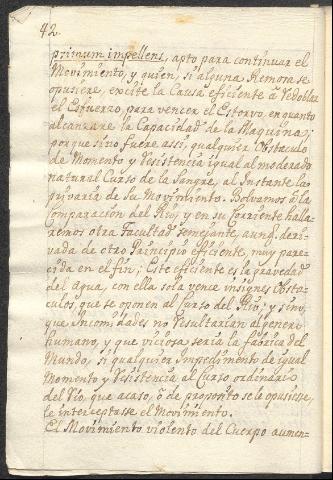 42
primum impellens, apto para continuar el
Movimiento, y quien, si alguna Remora se
opusiere, excite la Causa eficiente â Redoblar
el Esfuerzo, para vencer el Estorvo, en quanto
alcanzare la Capacidad de la Maquina;
porque si no fuere assi, qualquier Obstaculo
de Momento y Resistencia igual al moderado
natural Curso de la Sangre, al Instante la
privaria de su Movimiento. Bolvamos â la
comparacion del Rio, y en su Corriente halla-
remos otra Facultad semejante, aunq. deri-
vada de otro Principio eficiente, muy pare-
cida en el fin; Este eficiente es la gravedad
del Agua, con ella sola vence insignes Obsta-
culos, que se oponen al Curso del Rio; y sino,
que Incomidades no Resultarian al genero
humano, y que viciosa seria la fabrica del
Mundo, si qualquier Impedimento de igual
Momento y Resistencia al Curso ordinario
del Rio, que acaso, ô de proposito se le opusiesse,
le interceptasse el Movimiento.
El Movimiento violento del Cuerpo aumen-